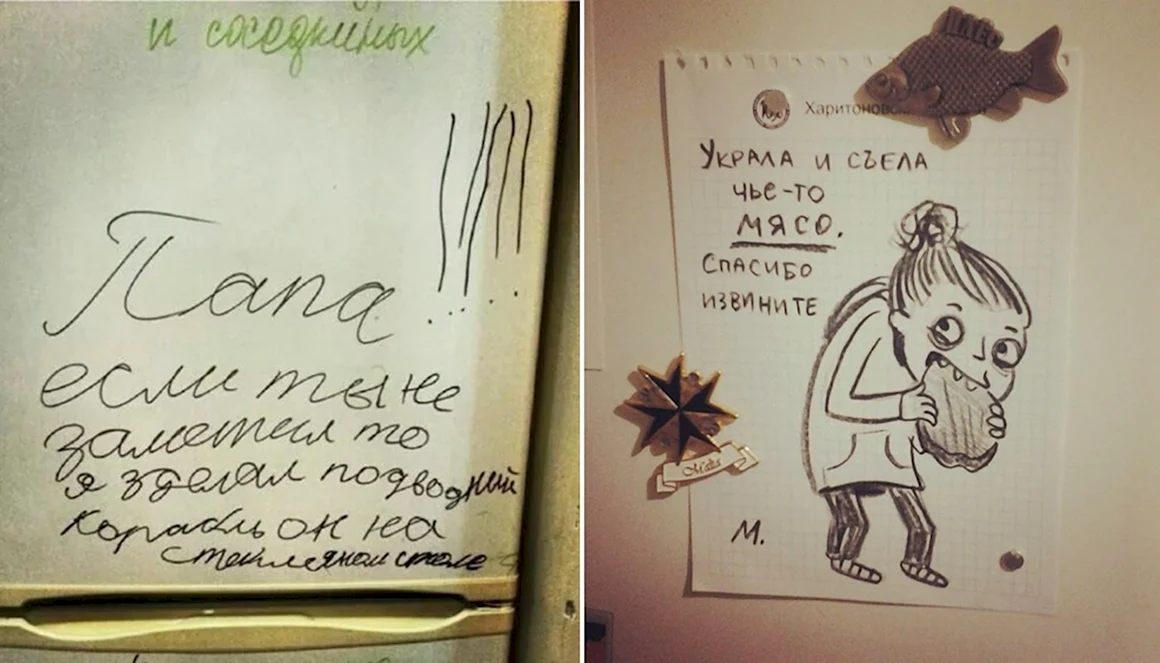 и соседкиных
Папа!!!!
если ты не
заметил то
я зделал подводный
корабль он на
стеклянном столе
Харитоновск
УКРАЛА И СЪЕЛА
ЧЬЕ-ТО
МЯСО.
СПАСИБО
ИЗВИНИТЕ
М.
Malta